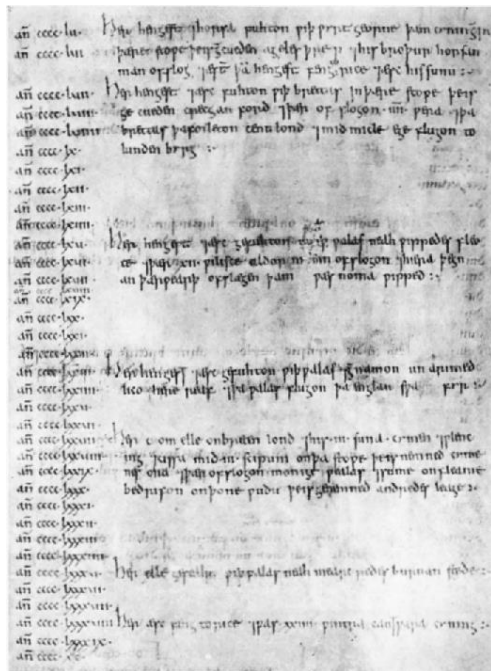 an̄ cccc.lu. Her hengest ⁊horsa fuhton ƿiþ ƿyrt georne þam cyninge in
an̄ cccc.lui. þære stoƿe þe is gecueden agæles þrep ⁊his broþur horsan
man ofslog. ⁊æft þā hengest feng to rice ⁊æsc his sunu :-
an̄ cccc.luii. Her hengest ⁊æsc fuhton ƿiþ brettas in þære stoƿe þe is
an̄ cccc.luiii. ge cueden crecgan ford ⁊þær of slogon .iiii. ƿera ⁊þa
an̄ cccc.luiiii. brettas þa forleton cent lond ⁊mid micle ege flugon to
an̄ cccc.lx. lunden byrg :-
an̄ cccc.lxi.
an̄ cccc.lxii.
an̄ cccc.lxiii.
an̄ cccc.lxiiii.
an̄ cccc.lxu. Her hengest ⁊æsc gefuhton ƿiþ ƿalas neah ƿippedes fleo
an̄ cccc.lxui. te ⁊þær .xii. ƿilisce aldor men ofslogon ⁊hiera þegn
an̄ cccc.lxuii. an þær ƿearþ ofslægen þam ƿæs noma ƿipped :-
an̄ cccc.lxuiii.
an̄ cccc.lxix.
an̄ cccc.lxx.
an̄ cccc.lxxi.
an̄ cccc.lxxii.
an̄ cccc.lxxiii. Her hengest ⁊æsc gefuhton ƿiþ ƿalas ⁊genamon un arimed
an̄ cccc.lxxiiii. lico here reaf ⁊þa ƿalas flugon þa englan sƿa fyr :-
an̄ cccc.lxxu.
an̄ cccc.lxxui.
an̄ cccc.lxxuii. Her cuom ælle on breten lond ⁊his .iii. suna cymen ⁊ƿlenc
an̄ cccc.lxxuiii. ing ⁊cissa mid .iii. scipum on þa stoƿe þe is nemned cyme
an̄ cccc.lxxix. nes ora ⁊þær ofslogon monige ƿealas ⁊sume on fleame
an̄ cccc.lxxx. bedrifon on þone ƿudu þe is genemned andredes leage :-
an̄ cccc.lxxxi.
an̄ cccc.lxxxii.
an̄ cccc.lxxxiii.
an̄ cccc.lxxxiiii.
an̄ cccc.lxxxu. Her ælle gefeaht ƿiþ ƿalas neah mearc rædes burnan stæde :-
an̄ cccc.lxxxui.
an̄ cccc.lxxxuii.
an̄ cccc.lxxxuiii. Her æsc feng to rice ⁊ƿas .xxiiii. ƿintra cantƿara cyning :-
an̄ cccc.lxxxix.
an̄ cccc.xc.